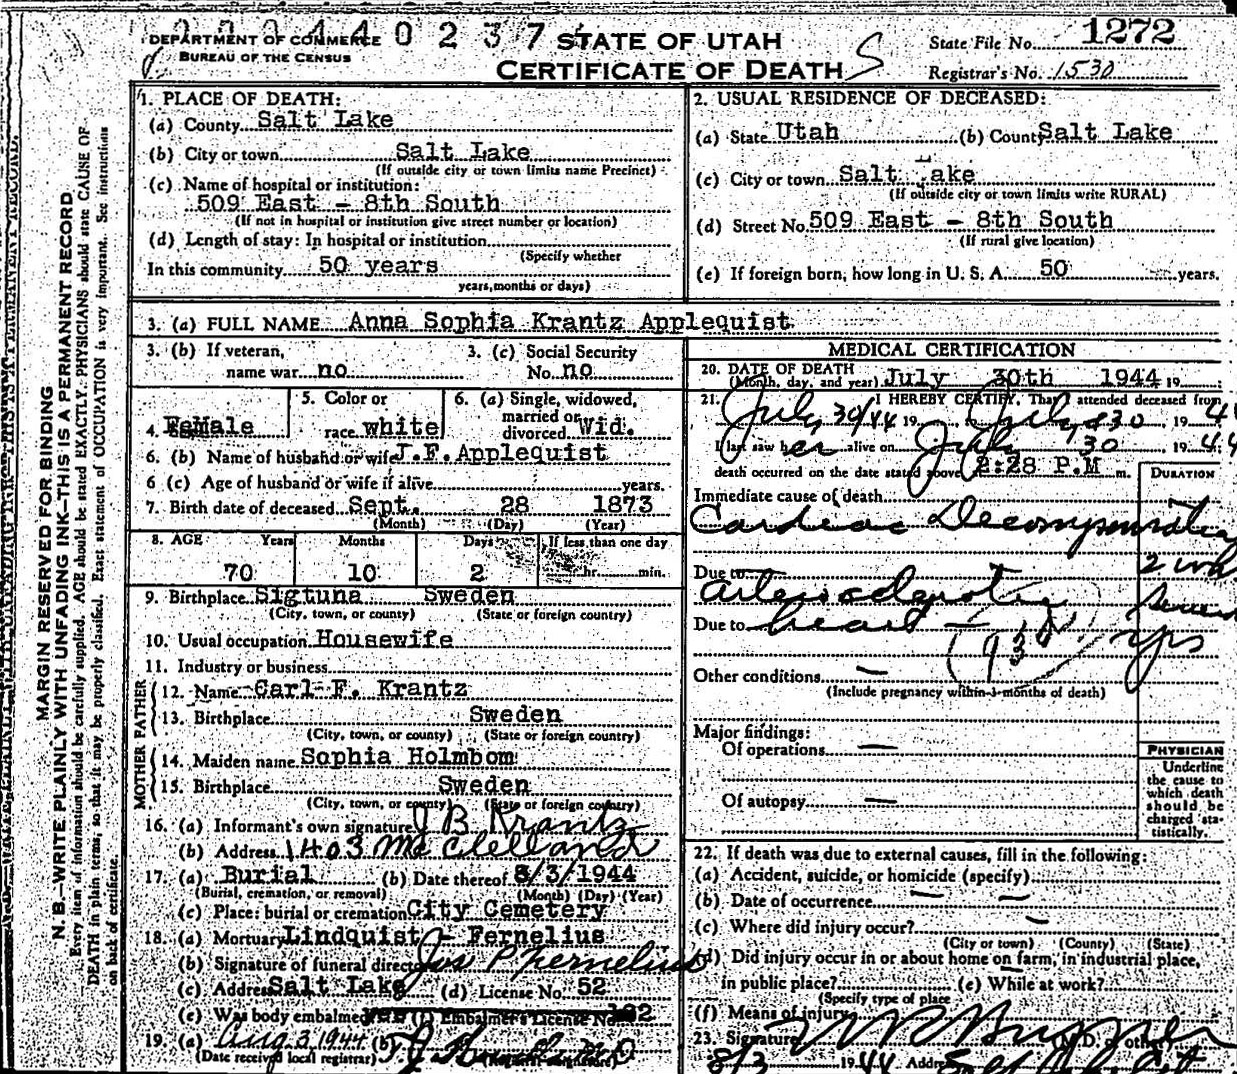 DEPARTMENT OF COMMERCE
BUREAU OF THE CENSUS
STATE OF UTAH
CERTIFICATE OF DEATH
State File No. 1272
Registrar's No. 1530
MARGIN RESERVED FOR BINDING
N. B.—WRITE PLAINLY WITH UNFADING INK—THIS IS A PERMANENT RECORD
Every item of information should be carefully supplied. AGE should be stated EXACTLY. PHYSICIANS should state CAUSE OF
DEATH in plain terms, so that it may be properly classified. Exact statement of OCCUPATION is very important. See instructions
on back of certificate.
1. PLACE OF DEATH:
(a) County Salt Lake
(b) City or town Salt Lake
(If outside city or town limits name Precinct)
(c) Name of hospital or institution:
509 East - 8th South
(If not in hospital or institution give street number or location)
(d) Length of stay: In hospital or institution
(Specify whether
In this community 50 years
years, months or days)
2. USUAL RESIDENCE OF DECEASED:
(a) State Utah (b) County Salt Lake
(c) City or town Salt Lake
(If outside city or town limits write RURAL)
(d) Street No. 509 East - 8th South
(If rural give location)
(e) If foreign born, how long in U. S. A. 50 years.
3. (a) FULL NAME Anna Sophia Krantz Applequist
3. (b) If veteran, name war no
3. (c) Social Security No. no
4. Female
5. Color or race white
6. (a) Single, widowed, married or divorced Wid.
6. (b) Name of husband or wife J.F. Applequist
6 (c) Age of husband or wife if alive years.
7. Birth date of deceased Sept. 28 1873
(Month) (Day) (Year)
8. AGE Years Months Days If less than one day
70 10 2 hr. min.
9. Birthplace Sigtuna Sweden
(City, town, or county) (State or foreign country)
10. Usual occupation Housewife
11. Industry or business
FATHER
12. Name Carl F. Krantz
13. Birthplace Sweden
(City, town, or county) (State or foreign country)
MOTHER
14. Maiden name Sophia Holmbom
15. Birthplace Sweden
(City, town, or county) (State or foreign country)
16. (a) Informant's own signature J B Krantz
(b) Address 1403 Mc Clelland
17. (a) Burial (b) Date thereof 8/3/1944
(Burial, cremation, or removal) (Month) (Day) (Year)
(c) Place: burial or cremation City Cemetery
18. (a) Mortuary Lindquist - Fernelius
(b) Signature of funeral director Jos P Fernelius
(c) Address Salt Lake (d) License No. 52
(e) Was body embalmed yes (f) Embalmer's License No.
19. (a) Aug 3, 1944 (b)
(Date received local registrar)
MEDICAL CERTIFICATION
20. DATE OF DEATH
(Month, day, and year) July 30th 1944 19
21. I HEREBY CERTIFY, That I attended deceased from
July 30/44 19 to July 30 19 44
I last saw her alive on July 30 19 44
death occurred on the date stated above 2:28 P.M m.
DURATION
Immediate cause of death
Cardiac Decompensation
2 wks
Due to
Arteriosclerotic
Due to heart
several yrs
Other conditions —
(Include pregnancy within 3 months of death)
Major findings:
Of operations —
Of autopsy —
PHYSICIAN
Underline
the cause to
which death
should be
charged sta-
tistically.
22. If death was due to external causes, fill in the following:
(a) Accident, suicide, or homicide (specify)
(b) Date of occurrence
(c) Where did injury occur?
(City or town) (County) (State)
(d) Did injury occur in or about home on farm, in industrial place,
in public place? (e) While at work?
(Specify type of place
(f) Means of injury
23. Signature (M.D. or other)
8/3 1944 Address